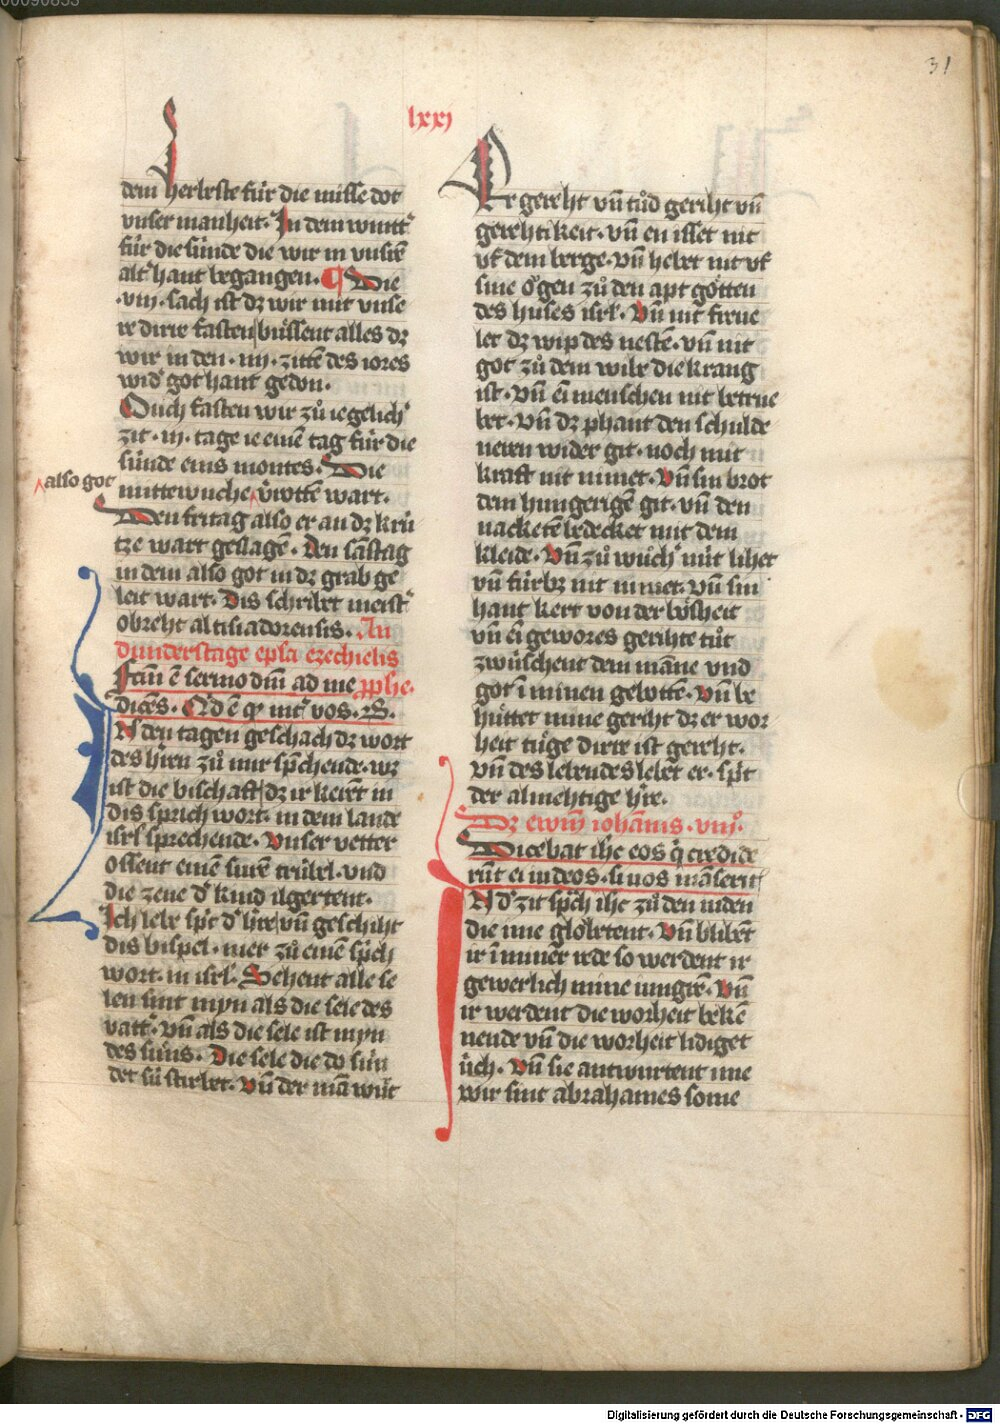 00090833
31
lxxj
dem herbeste für die misse dot
vnser manheit. In dem wintt͛
für die sünde die wir in vnsꝛē
alt͛ hant begangen. ¶ Die
.viii. sach ist dz wir mit vnse
re dirre fasten büssent alles dz
wir in den .iiii. zittē des iores
wid͛ got hant geton.
Ouch fasten wir zů iegelich͛
zit .iii. tage ie einē tag für die
sünde eins montes. Die
also got
mittewuche v͛rotten wart.
Den fritag also er an dz krü
tze wart geslagē. Den sāstag
in dem also got in dz grab ge
leit wart. Dis schribet meist͛
obreht altisiadorensis. An
dunderstage epl̄a ezechielis
Fc̄tū ē sermo dn̄i ad me ꝓphe.
dicēs. Qd ē ꝙ int͛ vos. B.
IN den tagen geschach dz wort
des h͛ren zů mir sp̄chende. wz
ist die bischaft dz ir kerēt in
dis sprich wort. in dem lande
isrl̄ sprechende. Vnser vetter
ossent einē surē trübel. vnd
die zene d͛ kind ilgertent.
Ich lebe sp̄t d͛ h͛re vn̄ geschiht
dis bispel. mer zů einē sp̄ch
wort. in isrl̄. Sehent alle se
len sint myn als die sele des
vatt͛. vn̄ als die sele ist myn
des suns. Die sele die do sün
det sü stirbet. Vn̄ der mā würt
Er gereht vn̄ tůd geriht vn̄
gerehtikeit. vn̄ en isset nit
vf dem berge. vn̄ hebet nit vf
sine ögen zů den apt götten
des huses isrl̄. Vn̄ nit freue
let dz wip des nestē. vn̄ nit
got zů dem wibe die krang
ist. vn̄ ein menschen nit betrue
bet. vn̄ dz phant den schulde
neren wider git. noch mit
kraft nit nimet. Vn̄ sin brot
dem hungerigē git. vn̄ den
nacketē bedecket mit dem
kleide. Vn̄ zů wůch͛ nüt lihet
vn̄ fürbz nit nimet. vn̄ sin
hant kert von der bösheit
vn̄ ein gewores gerihte tůt
zwüschent dem māne vnd
got ī minen gebotten. Vn̄ be
hüttet mine geriht dz er wor
heit tüge dirre ist gereht.
vn̄ des lebendes lebet er. sp̄t
der almehtige h͛re.
Dz ewīī iohānis .viij.
Dicebat ihc eos q̄ credide
rūt ei iudeos. si uos māserit͛
IN d͛ zit sp̄ch ihc zů den iuden
die ime glöbetent. Vn̄ blibēt
ir ī minēr rede so werdent ir
gewerlich mine iungrē. Vn̄
ir werdent die worheit bekē
nende vn̄ die worheit lidiget
üch. Vn̄ sie antwurtent ime
wir sint abrahames some
Digitalisierung gefördert durch die Deutsche Forschungsgemeinschaft - DFG